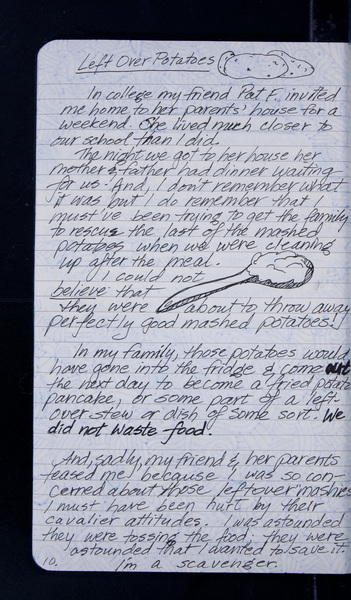 Left Over Potatoes
In college my friend Pat F. invited
me home to her parents' house for a
weekend. She lived much closer to
our school than I did.
The night we got to her house her
mother & father had dinner waiting
for us. And, I don't remember what
it was but I do remember that I
must've been trying to get the family
to rescue the last of the mashed
potatoes when we were cleaning
up after the meal.
I could not
believe that
they were about to throw away
perfectly good mashed potatoes!
In my family, those potatoes would
have gone into the fridge & come out
the next day to become a fried potato
pancake, or some part of a left-
over stew or dish of some sort. We
did not waste food.
And, sadly, my friend & her parents
teased me, because I was so con-
cerned about those "leftover" mashies.
I must have been hurt by their
cavalier attitudes. I was astounded
they were tossing the food, they were
astounded that I wanted to save it.
10. I'm a scavenger.